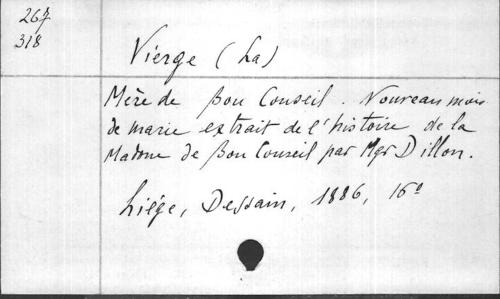 267
318
Vierge (La)
Mère de Bon Conseil. Nouveau mois
de marie extrait de l'histoire de la
Madone de Bon Conseil par Mgr Dillon.
Liége, Dessain, 1886, 16°